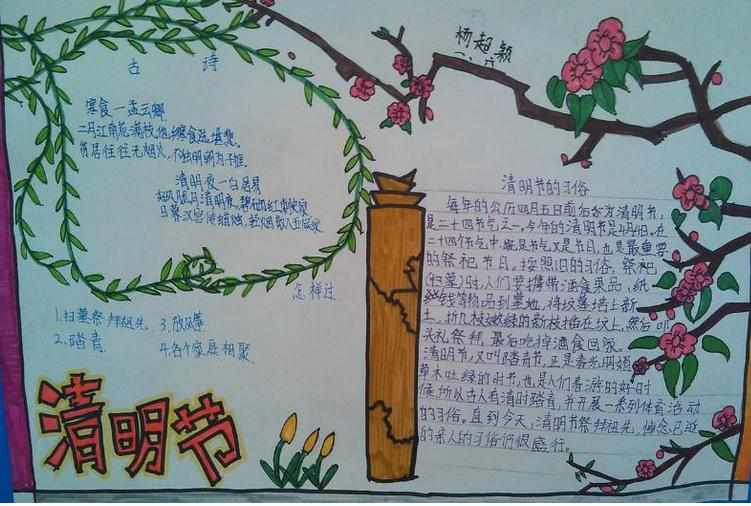 古 诗
寒食 — 孟云卿
二月江南花满枝,他乡寒食远堪悲。
贫居往往无烟火,不独明朝为子推
清明夜 — 白居易
日暮汉宫传蜡烛,轻烟散入五侯家
怎样过
1.扫墓祭拜祖先 3.放风筝
2.踏青 4.各个家庭相聚
清明节
杨超颖
清明节的习俗
每年的公历四月五日前后为清明节,
是二十四节气之一,今年的清明节是4月4日。在
二十四个节气中,既是节气又是节日,也是最重要
的祭祀节日。按照旧的习俗,祭祀
(扫墓)时,人们要携带酒食果品、纸
钱等物品到墓地,将坟墓培上新
土,折几枝嫩绿的新枝插在坟上,然后叩
头礼祭拜,最后吃掉酒食回家。
清明节,又叫踏青节,正是春光明媚
草木吐绿的时节,也是人们春游的好时
候,所以古人有清明踏青,并开展一系列体育活动
的习俗。直到今天,清明节祭拜祖先,悼念已逝
的亲人的习俗仍很盛行。